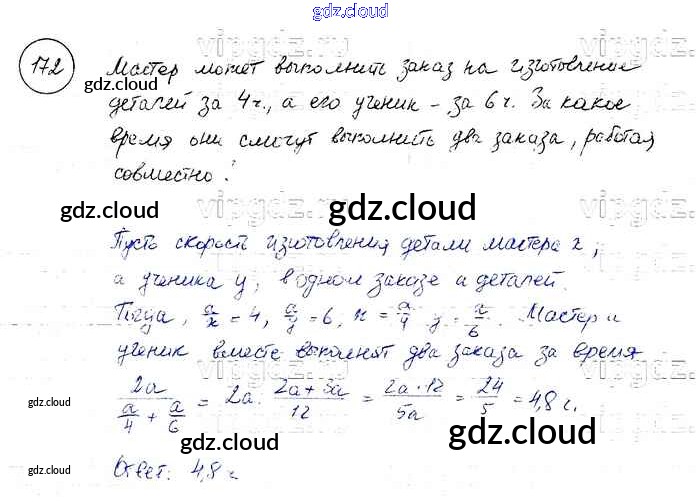 gdz.cloud
172
Мастер может выполнить заказ на изготовление
деталей за 4 ч., а его ученик – за 6 ч. За какое
время они смогут выполнить два заказа, работая
совместно?
Пусть скорость изготовления детали мастера x,
а ученика y, в одном заказе a деталей.
Тогда, a/x = 4, a/y = 6, x = a/4 y = a/6. Мастер и
ученик вместе выполнят два заказа за время
2a/(a/4 + a/6) = 2a : (2a+3a)/12 = 2a·12/5a = 24/5 = 4,8 ч.
Ответ: 4,8 ч
vipgdz.ru
gdz.cloud
gdz.cloud
gdz.cloud
gdz.cloud
gdz.cloud
gdz.cloud
gdz.cloud
gdz.cloud
gdz.cloud